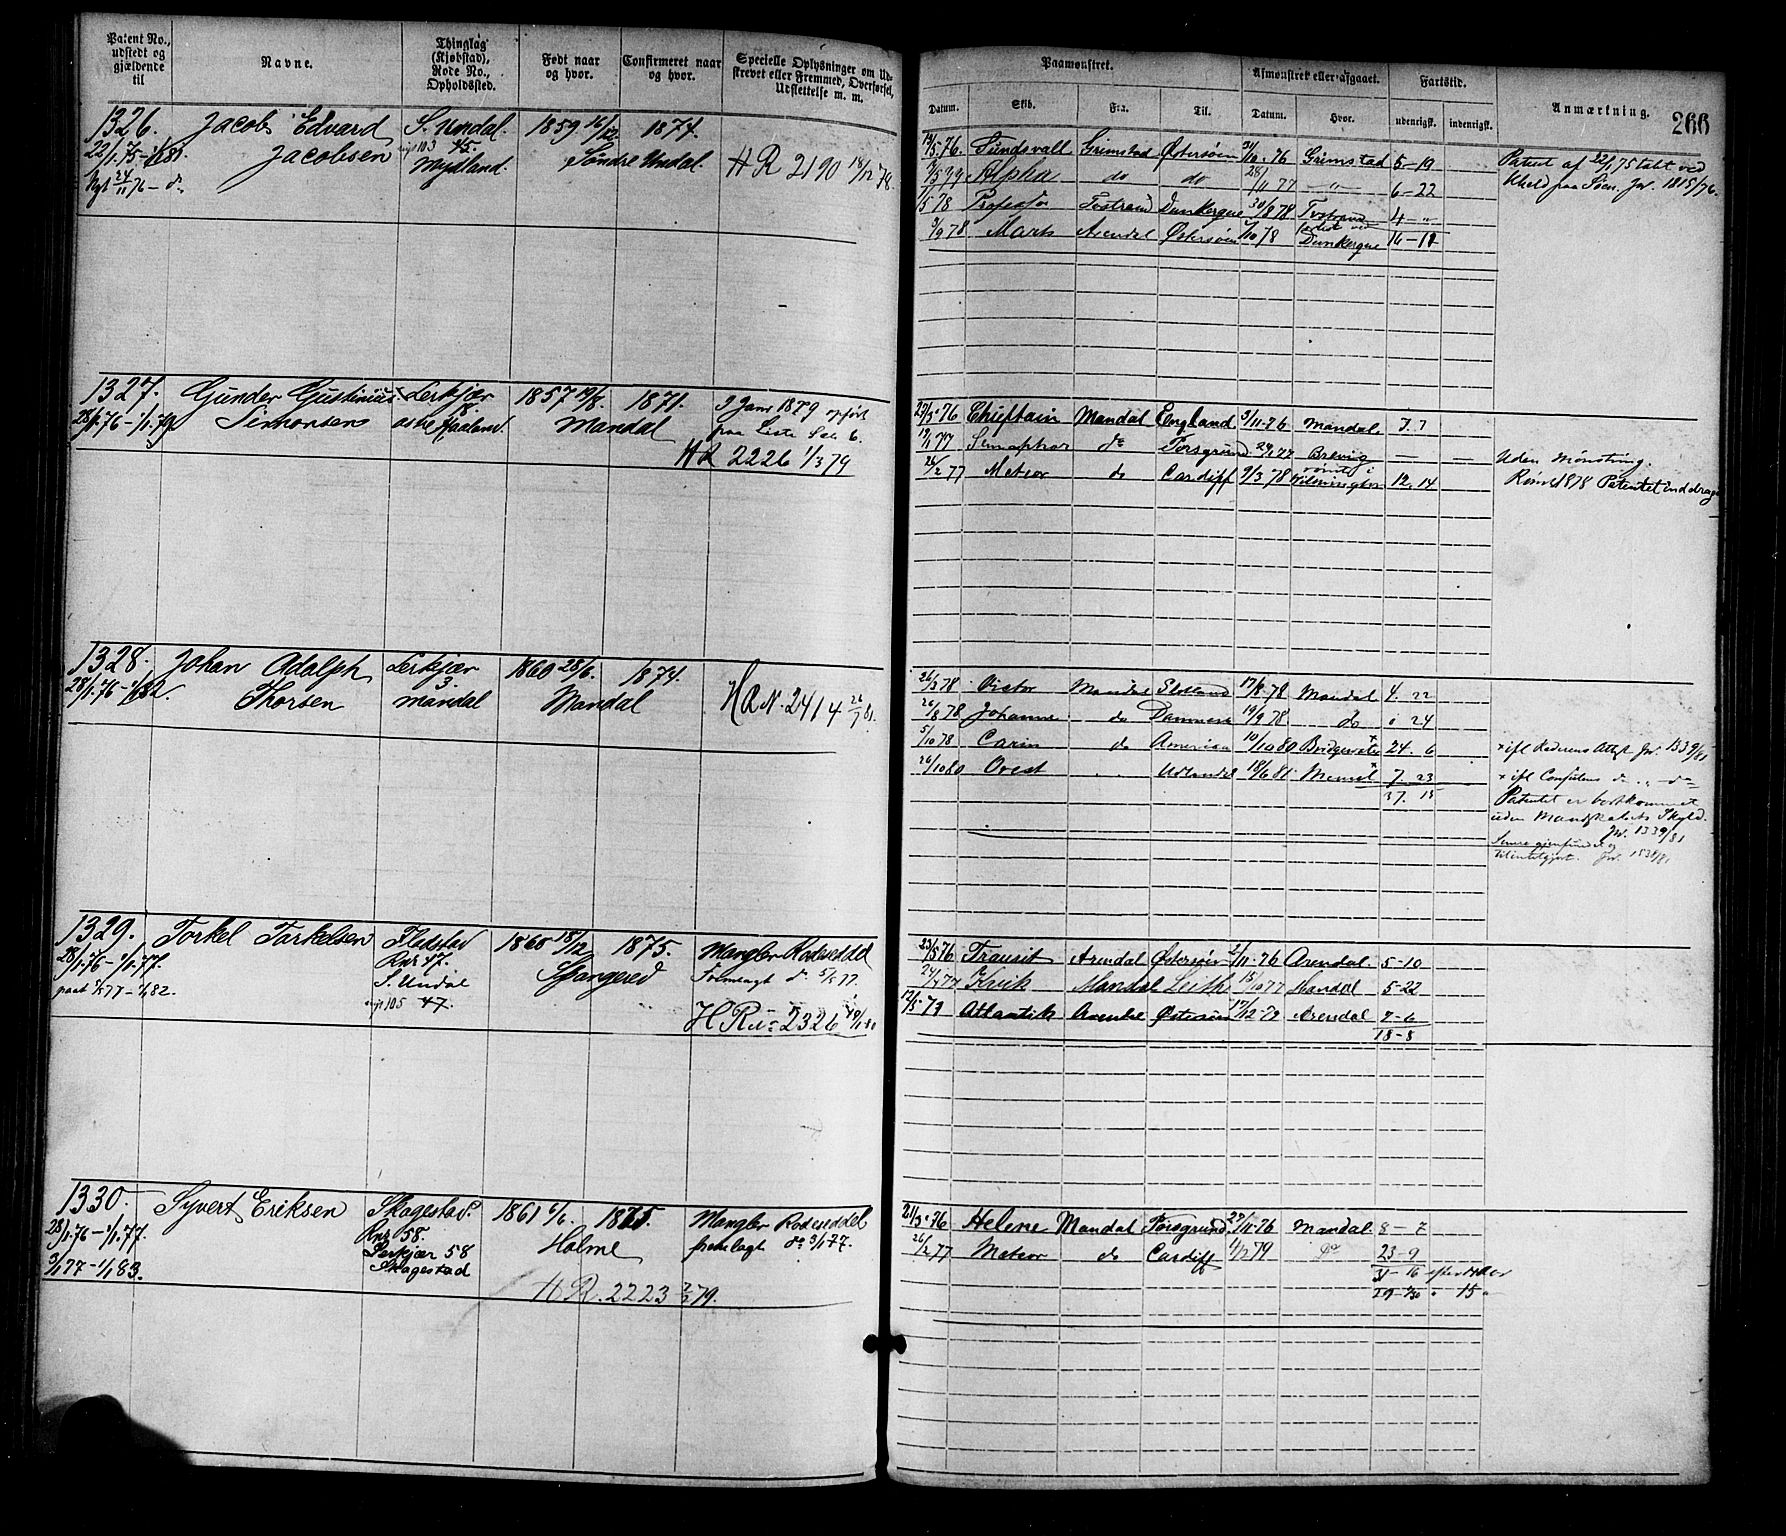 Patent No., udstedt og gjældende til
Navne.
Thinglag (Kjøbstad), Rode No., Opholdssted.
Født naar og hvor.
Confirmeret naar og hvor.
Specielle Oplysninger om Udskrevet eller Fremmed, Overførsel, Udslettelse m. m.
Paamønstret.
Datum. Skib. Fra. Til.
Afmønstret eller afgaaet.
Datum. Hvor.
Fartstid.
udenrigsk. indenrigsk.
Anmærkning.
266
1326. Jacob Edvard S. Undal. 1859 16/12 1874.
22/1.75-1/1.81. Jacobsen 103 45. Søndre Undal. HR 2190 18/12 78.
Nyt 24/11 76 - do Mydland.
14/5.76. Sundsvall Grimstad Østersøen 24/10.76 Grimstad 5-19 Patent af 22/1 75 tabt ved
Alpha do do 28/11 77 -"- 6-22 Jr. 1815/76.
/5 78 Professor Tvestrand Dunkerque 30/8 78 Tvestrand 4 - "
9/9 78 Marts Arendal Østersøen /10 78 forlist ved Dunkerque 16-18
1327. Gunder Gustinius Lerkjær 1857 19/8. 1871. 3 Janr 1879 opført
28/1.76-1/1.79 Simonsen 18. Mandal paa Liste 6.
HR 2226 1/3 79
29/3.76 Chieftain Mandal England 9/11.76 Mandal. 7.7
19/1 77 Semaphor do Porsgrund 24/2 77 Brevig — — Uden Mønstring.
26/2 77 Meteor do Cardiff 9/3 78 rømt i Wilmington 12.14 Rømt 1878 Patentet inddrages
1328. Johan Adolph Lerkjær 1860 28/6. 1874.
28/1.76-1/1.82. Thorsen 3. Mandal Mandal HR N. 2414 26/7 81.
26/3 78 Victor Mandal Skotland 17/8.78 Mandal 4. 22
26/8 78 Johanne do Danmark 19/9 78 do " 24
5/10 78 Carin do America 10/10 80 Bridgewater x 24. 6 x ifl Rederens Attest Jr. 1339/81
26/10 80 Orest " " Udlandet 18/6 81. Memel x 7. 23 x ifl Consulens do " - do
37. 15 Patentet er bortkommet
uden Mandskabets Skyld.
Jr. 1339/81
Senere gjenfundet og
tilintetgjort. Jr. 1538/81
1329. Torkel Torkelsen Fladstad 1860 18/12 1875. Mangler Rodeseddel
28/1.76-1/1.77. Rnr 47. Spangereid Fremlagt do 5/1 77.
paat 5/1 77-1/1 82. S. Undal
105 47. HR No 2326 19/1 80
23/5 76 Transit Arendal Østersøen 2/11.76 Arendal. 5-10
24/4 77 Kvik Mandal Leith 15/10 77 Mandal 5-22
12/5.79 Atlantik Arendal Østersøen 17/12.79 Arendal 7-6
18-8
1330. Syvert Eriksen Skagestad. 1861 6/6. 1875. Mangler Rodeseddel
28/1.76-1/1.77. Rnr 58. Holme fremlagt do 3/1 77.
3/1 77-1/1 83. Lerkjær 58
Skagestad
HR. 2223 /2 79.
21/3.76 Helene Mandal Porsgrund 29/11.76 Mandal 8-7
26/2 77 Meteor do Cardiff 1/2 79 do 23-9
31-16
15